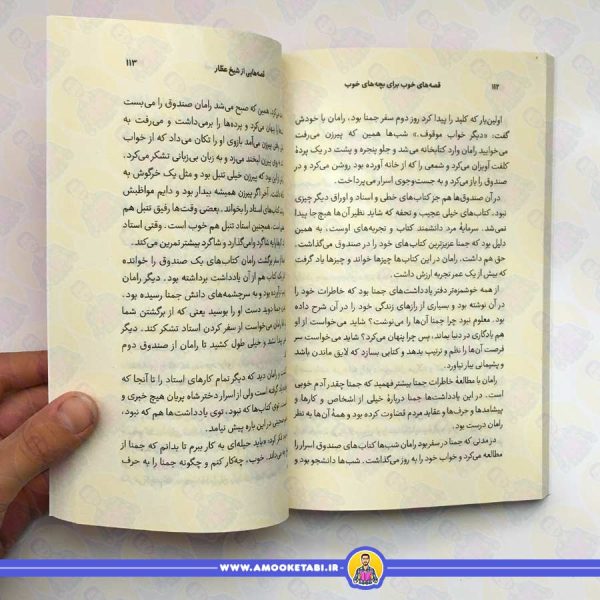 ۱۱۲
قصه‌های خوب برای بچه‌های خوب
اولین‌بار که کلید را پیدا کرد روز دوم سفر جمنا بود، رامان با خودش
گفت: «دیگر خواب موقوف.» شب‌ها همین که پیرزن می‌رفت
می‌خوابید رامان وارد کتابخانه می‌شد و جلو پنجره و پشت در یک پردهٔ
کلفت آویزان می‌کرد و شمعی را که از خانه آورده بود روشن می‌کرد و در
صندوق را باز می‌کرد و به جست‌وجوی اسرار می‌پرداخت.
در آن صندوق‌ها هم جز کتاب‌های خطی و اسناد و اوراق دیگر چیزی
نبود. کتاب‌های خیلی عجیب و تحفه که شاید نظیر آن‌ها هیچ‌جا پیدا
نمی‌شد. سرمایهٔ مرد دانشمند کتاب و تجربه‌های اوست، به همین
دلیل بود که جمنا عزیزترین کتاب‌های خود را در صندوق می‌گذاشت.
حق هم داشت، رامان در این کتاب‌ها چیزها خواند و چیزها یاد گرفت
که بیش از یک عمر تجربه ارزش داشت.
از همه خوشمزه‌تر دفتر یادداشت‌های جمنا بود که خاطرات خود را
در آن نوشته بود و بسیاری از رازهای زندگی خود را در آن شرح داده
بود. معلوم نبود چرا جمنا آن‌ها را می‌نوشت؟ شاید می‌خواست از او
هم یادگاری در دنیا بماند، پس چرا پنهان می‌کرد؟ شاید می‌خواست سر
فرصت آن‌ها را نظم و ترتیب بدهد و کتابی بسازد که لایق ماندن باشد
و پشیمانی ببار نیاورد.
رامان با مطالعهٔ خاطرات جمنا بیشتر فهمید که جمنا چقدر آدم خوبی
است، می‌دید که جمنا دربارهٔ خیلی از اشخاص و کارها و
پیشامدها و حرف‌ها و عقاید مردم قضاوت کرده بود و همهٔ آن‌ها به نظر
رامان درست بود.
در مدتی که جمنا در سفر بود رامان شب‌ها کتاب‌های صندوق اسرار را
مطالعه می‌کرد و خواب خود را به روز می‌گذاشت. شب‌ها دانشجو بود و
قصه‌هایی از شیخ عطار
۱۱۳
همین که صبح می‌شد رامان صندوق را می‌بست
پنهان می‌کرد و پرده‌ها را برمی‌داشت و می‌رفت به
پیرزن می‌آمد بازوی او را تکان می‌داد که از خواب
روی پیرزن لبخند می‌زد و به زبان بی‌زبانی تشکر می‌کرد.
این بود که پیرزن خیلی تنبل بود و مثل یک خرگوش به
آخر اگر پیرزن همیشه بیدار بود و دایم مواظبش
کتاب‌های استاد را بخواند. بعضی وقت‌ها رفیق تنبل هم
همچنین استاد تنبل هم خوب است. وقتی استاد
را به شاگرد وامی‌گذارد و شاگرد بیشتر تمرین می‌کند.
از سفر برگشت رامان کتاب‌های یک صندوق را خوانده
کتاب هم از آن یادداشت برداشته بود. دیگر رامان
آورده بود و به سرچشمه‌های دانش جمنا رسیده بود.
جمنا دوید دست او را بوسید یعنی که از برگشتن شما
رامان می‌خواست از سفر کردن استاد تشکر کند. دیگر
نمی‌شد و خیلی طول کشید تا رامان از صندوق دوم
رامان دید که دیگر تمام کارهای استاد را تا آنجا که
یاد گرفته است ولی از اسرار دختر شاه پریان هیچ خبری و
توی کتاب‌ها که نبود، توی یادداشت‌ها هم که نبود،
صحبتی در این باره پیش نیامد.
فکر کرد: «باید حیله‌ای به کار ببرم تا بدانم که جمنا از
می‌داند. خوب، چه‌کار کنم و چگونه جمنا را به حرف
WWW.AMOOKETABI.IR